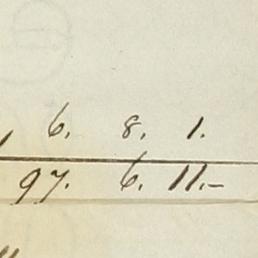 6. 8. 1.
97. 6. 11.-